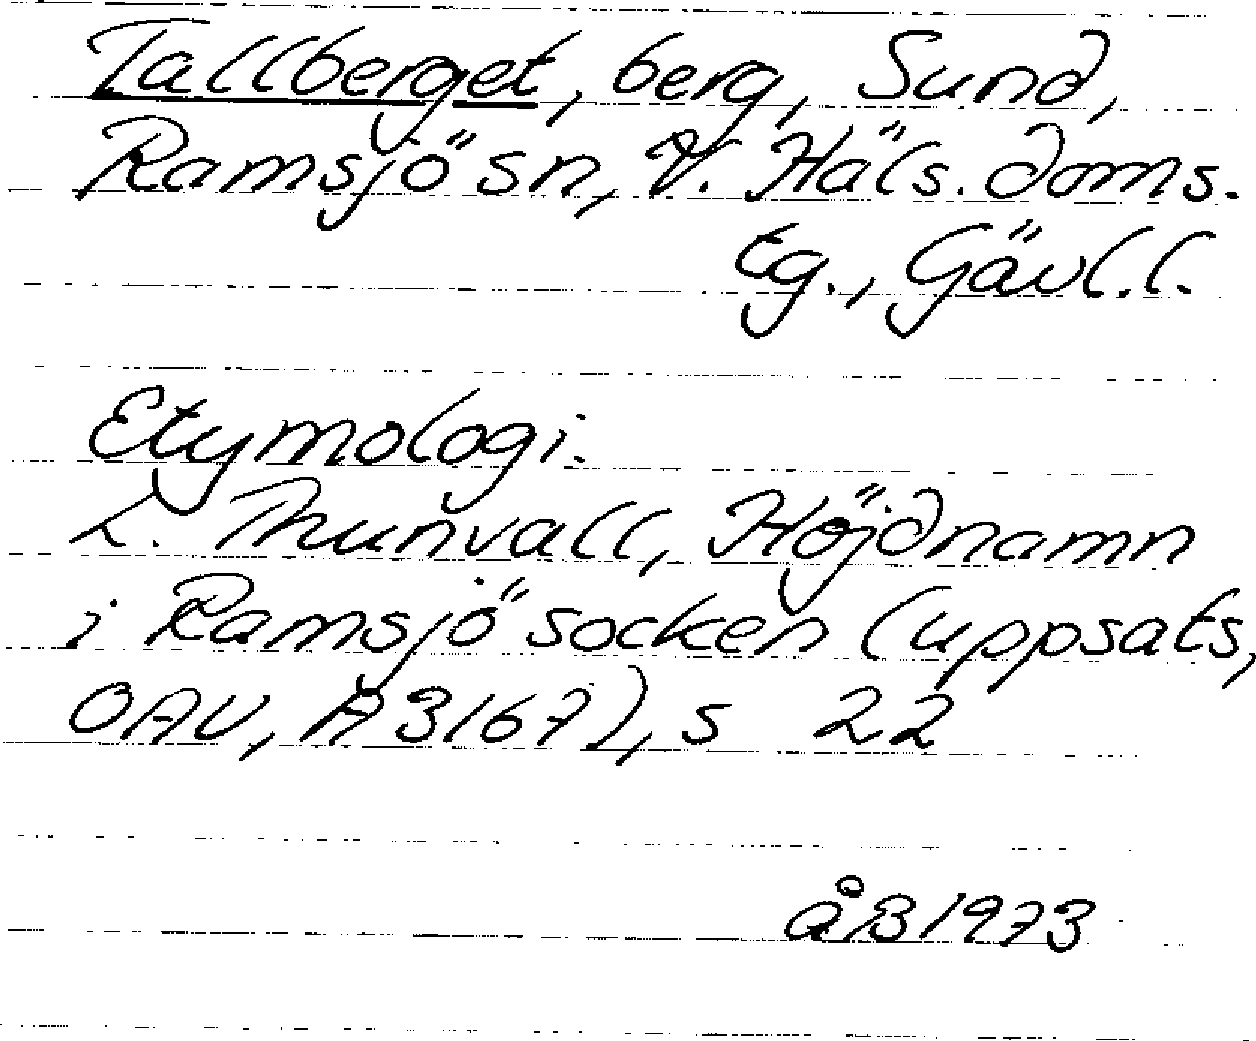 Tallberget, berg, Sund,
Ramsjö sn, V. Häls. doms.
tg., Gävl.l.
Etymologi.
L. Thunvall, Höjdnamn
i Ramsjö socken (uppsats,
OAU, A 3167), s 22
åB 1973